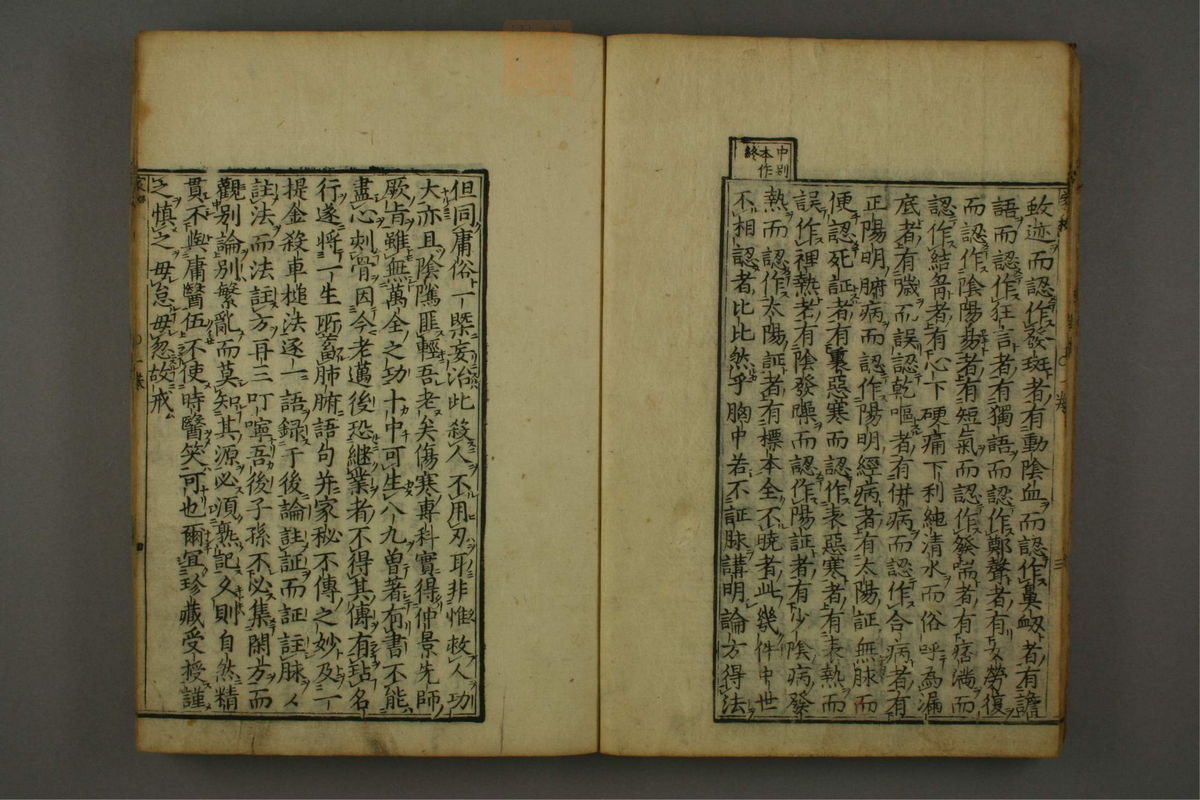 中别
本作
終
蚊迹而認作發斑者有動陰血而認作鼻衂者有譫
語而認作狂言者有獨語而認作鄭聲者有女勞復
而認作陰陽昜者有短氣而認作發喘者有痞滿而
認作結胷者有心下硬痛下利純清水而俗呼為漏
底者有噦而誤認乾嘔者有併病而認作合病者有
正陽明腑病而認作陽明經病者有太陽証無脉而
便認死証者有裏惡寒而認作表惡寒者有表熱而
誤作裡熱者有陰發躁而認作陽証者有少陰病發
熱而認作太陽証者有標本全不暁者此幾件中世
不相認者比比然乎胸中若不証脉講明論方得法
但同庸俗一槩妄治此殺人不用刃耳非惟救人功
大亦且陰隲匪輕吾老矣傷寒專科實得仲景先師
厥旨雖無萬全之功十中可生八九曽著有書不能
盡心刺骨因今老邁後恐継業者不得其傳有玷名
行遂將一生所畜肺腑語句并家秘不傳之妙及一
提金殺車槌法逐一語録于後論註証而証註脉人
註法而法註方再三叮嚀吾後子孫不必集閑方而
觀别論别繁亂而莫知其源必須熟記久則自然精
貫不與庸醫伍不使時醫笑可也爾宜珍藏受授謹
之慎之毋怠毋忽故戒